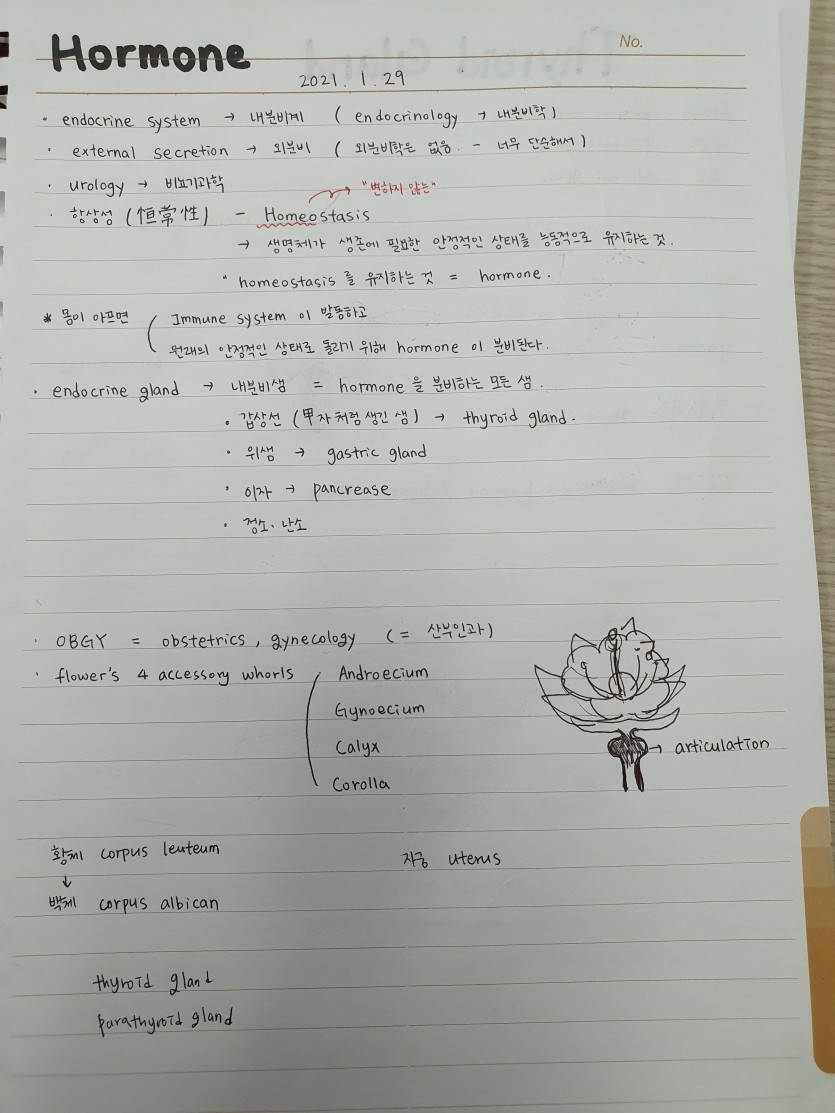 Hormone
No.
2021. 1. 29
· endocrine system → 내분비계 ( endocrinology → 내분비학 )
· external secretion → 외분비 ( 외분비학은 없음. - 너무 단순해서 )
· urology → 비뇨기과학
→ "변하지 않는"
· 항상성 (恒常性) - Homeostasis
→ 생명체가 생존에 필요한 안정적인 상태를 능동적으로 유지하는 것.
" homeostasis 를 유지하는 것 = hormone.
* 몸이 아프면 ( Immune system 이 발동하고
원래의 안정적인 상태로 돌리기 위해 hormone 이 분비된다.
· endocrine gland → 내분비샘 = hormone 을 분비하는 모든 샘.
· 갑상선 (甲자처럼 생긴 샘) → thyroid gland.
· 위샘 → gastric gland
· 이자 → pancrease
· 정소. 난소
· OBGY = obstetrics, gynecology (= 산부인과)
· flower's 4 accessory whorls ( Androecium
Gynoecium
Calyx
Corolla
→ articulation
황체 corpus leuteum
자궁 uterus
↓
백체 corpus albican
thyroid gland
parathyroid gland